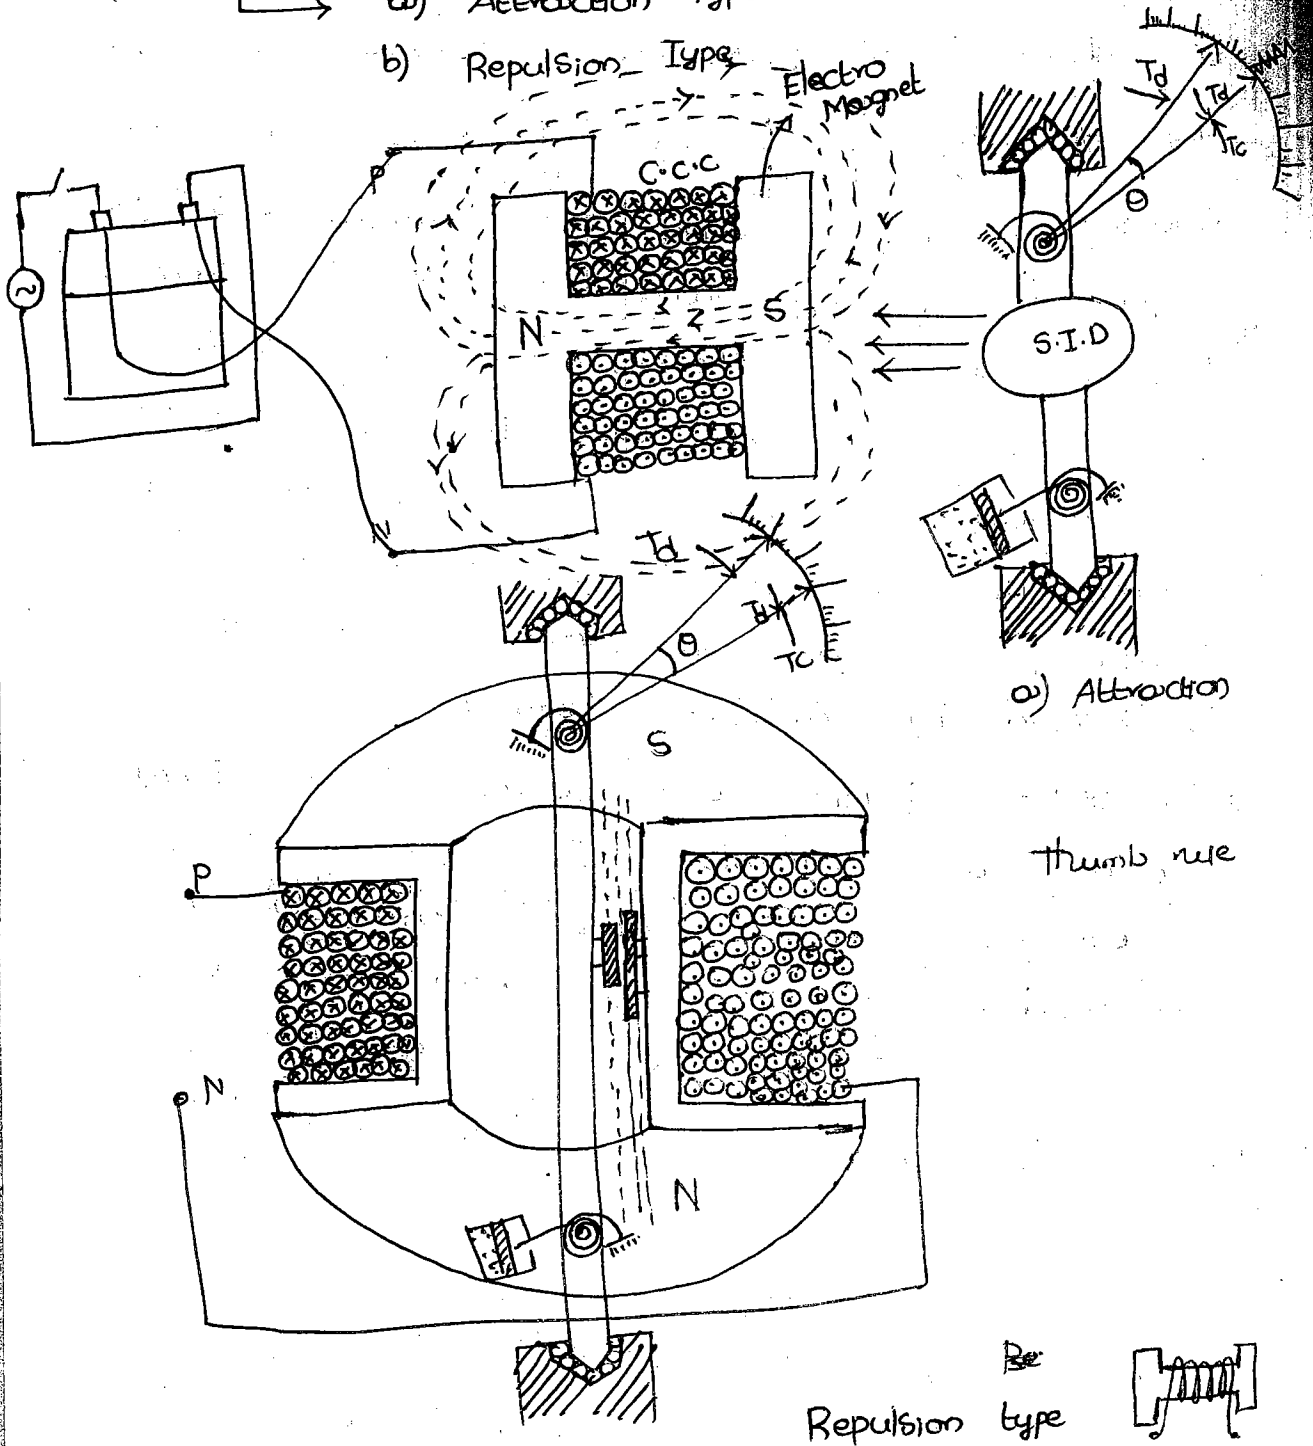 a) Attraction
b) Repulsion Type
Electro
Magnet
C.C.C
P
N
S
2
N
S.I.D
Td
Td
Tc
θ
Td
Td
Tc
θ
a) Attraction
S
P
N
N
Thumb rule
Repulsion type